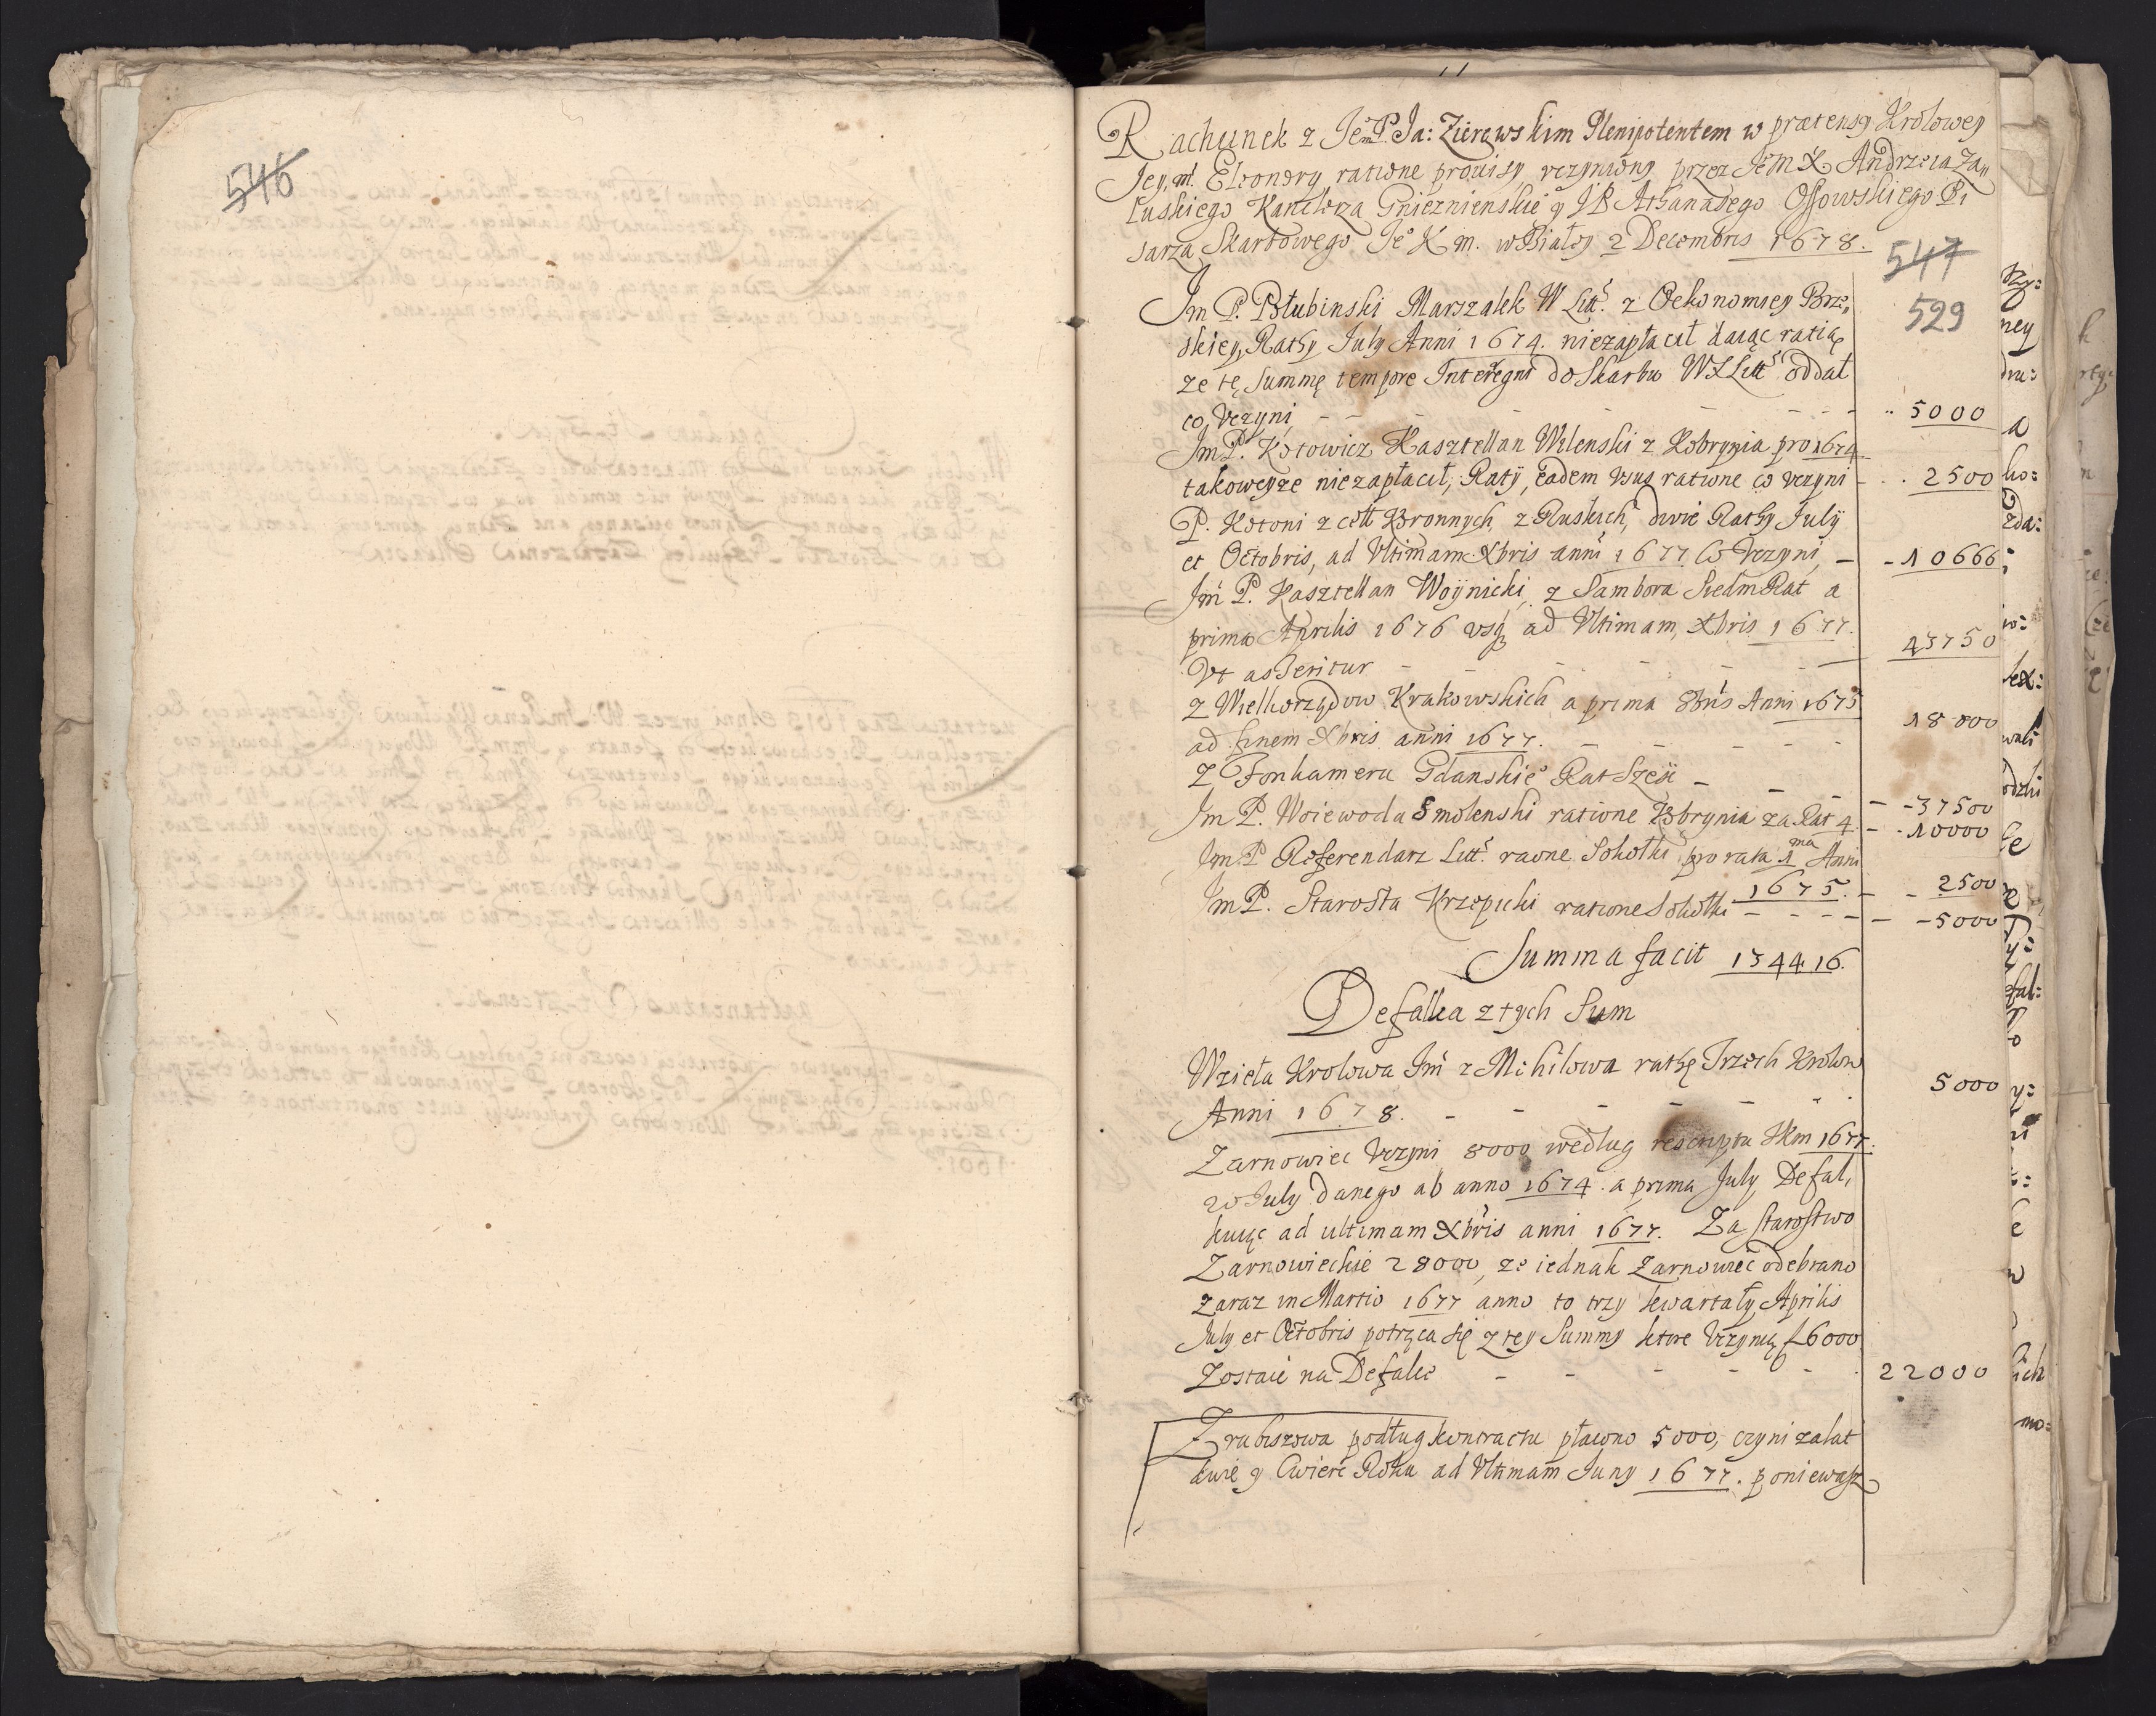 546
Rachunek z Jem P. Ja: Zierowskim Plenipotentem w prætensy Krolowey
Jey mł Eleonory ratione prouisy vczyniony przez Jem X Andrzeia Za,,
łuskiego Kanclerza Gniezninskie y JP Athanasego Ossowskiego Pi
sarza Skarbowego Je° K m. w Białey 2 Decembris 1678.
547
529
Jm P. Połubinski Marszałek W Litt. z Oekonomiey Brze,,
skiey, Rathy July Anni 1674. niezapłacił daiąc ratią
ze tę summę tempore Interregni do Skarbu WX Litt oddał
co vczyni, - - - - - - 5000
Jm P. Kotowicz Kasztellan Wilenski z Kobrynia pro 1674
takoweyze niezapłacił, Raty, eadem vsus ratione co vczyni - - 2500
P. Kotoni z cełł Koronnych, z Ruskich, dwie Rathy July
et Octobris, ad Vltimam Xbris anni 1677 Co Vczyni, - - 10666
Jm P. Kasztellan Woynicki, z Sambora Siedm Rat a
prima Aprilis 1676 vsq ad Vltimam, Xbris 1677.
Vt asseritur - - - - - - 43750
z Wielkorządow Krakowskich a prima 8bris Anni 1675
ad finem Xbris anni 1677. - - - - - 18000
Z Fonkameru Gdanskie° Rat Szesć - - - - - 37500
Jm P. Woiewoda Smolenski ratione Kobrynia za Rat 4 - - 10000
Jm P Referendarz Litt. raone Sokołki pro rata 1ma Anni
1675. - - 2500
Jm P. Starosta Krzepicki ratione Sokołki - - - - - 5000
Summa facit 134416.
Defalka z tych Sum
Wzieła Krolowa Jm z Michilowa rathę Trzech Krolow
Anni 1678. - - - - - 5000
Zarnowiec Vczyni 8000 według rescriptu Jkm 1677.
20 July danego ab anno 1674. a prima July Defal,
kuiąc ad ultimam Xbris anni 1677. Za starostwo
Zarnowieckie 28000, ze iednak Zarnowiec odebrano
zaraz in Martio 1677 anno to trzy kwartały Aprilis
July et Octobris potrąca się z tey Summy ktore Vczynią f 6000
Zostaie na Defalke - - - - - 22000
Z rubiszowa podług kontractu płacono 5000, czyni za lat
dwie y Cwierc Roku ad Vltimam Juny 1677. poniewasz